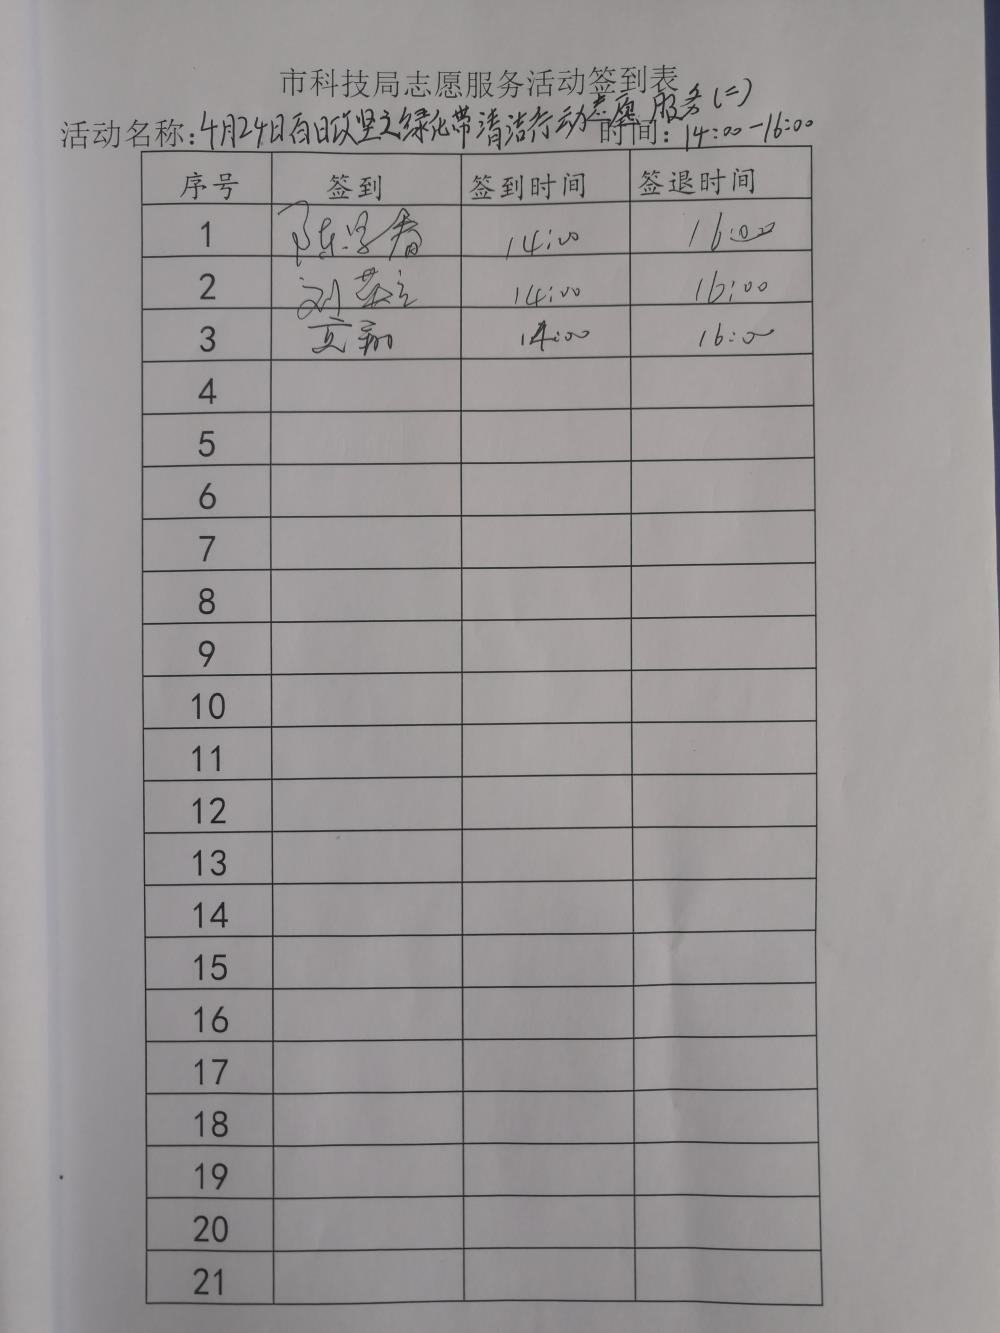 市科技局志愿服务活动签到表
活动名称:4月24日百日攻坚之绿化带清洁行动志愿服务(二) 时间:14:00-16:00
序号 签到 签到时间 签退时间
1 14:00 16:00
2 14:00 16:00
3 14:00 16:00
4
5
6
7
8
9
10
11
12
13
14
15
16
17
18
19
20
21